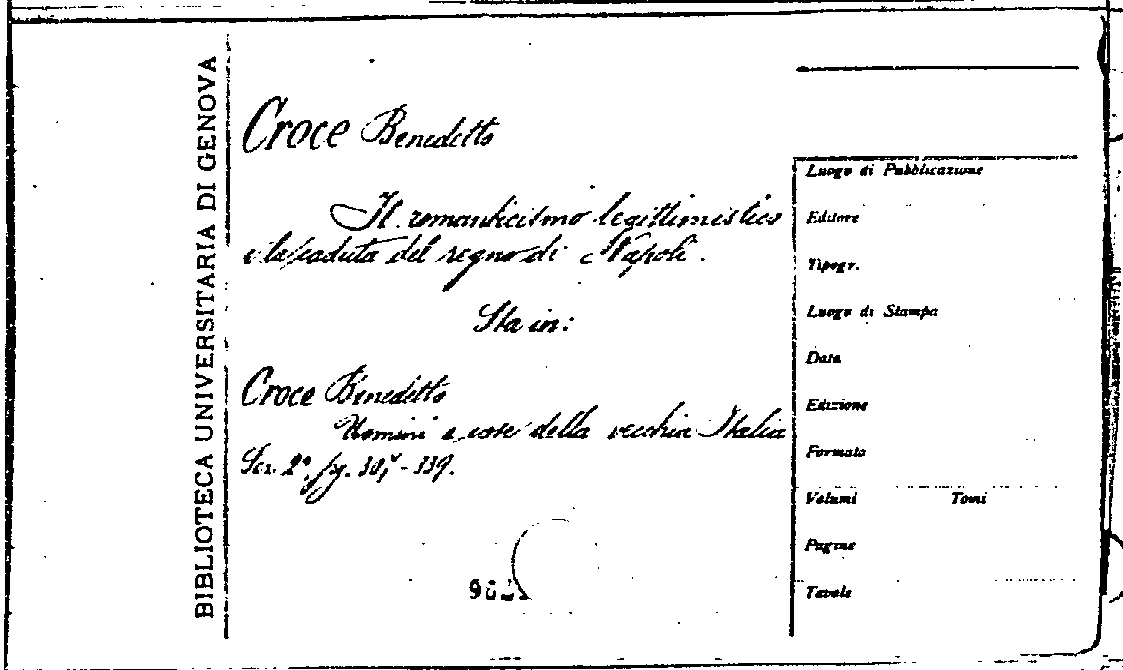 BIBLIOTECA UNIVERSITARIA DI GENOVA
Croce Benedetto
Il romanticismo legittimistico
e la caduta del regno di Napoli.
Sta in:
Croce Benedetto
Uomini e cose della vecchia Italia
Ser. 2ª, pg. - 339.
Luogo di Pubblicazione
Editore
Tipogr.
Luogo di Stampa
Data
Edizione
Formato
Volumi Tomi
Pagine
Tavole